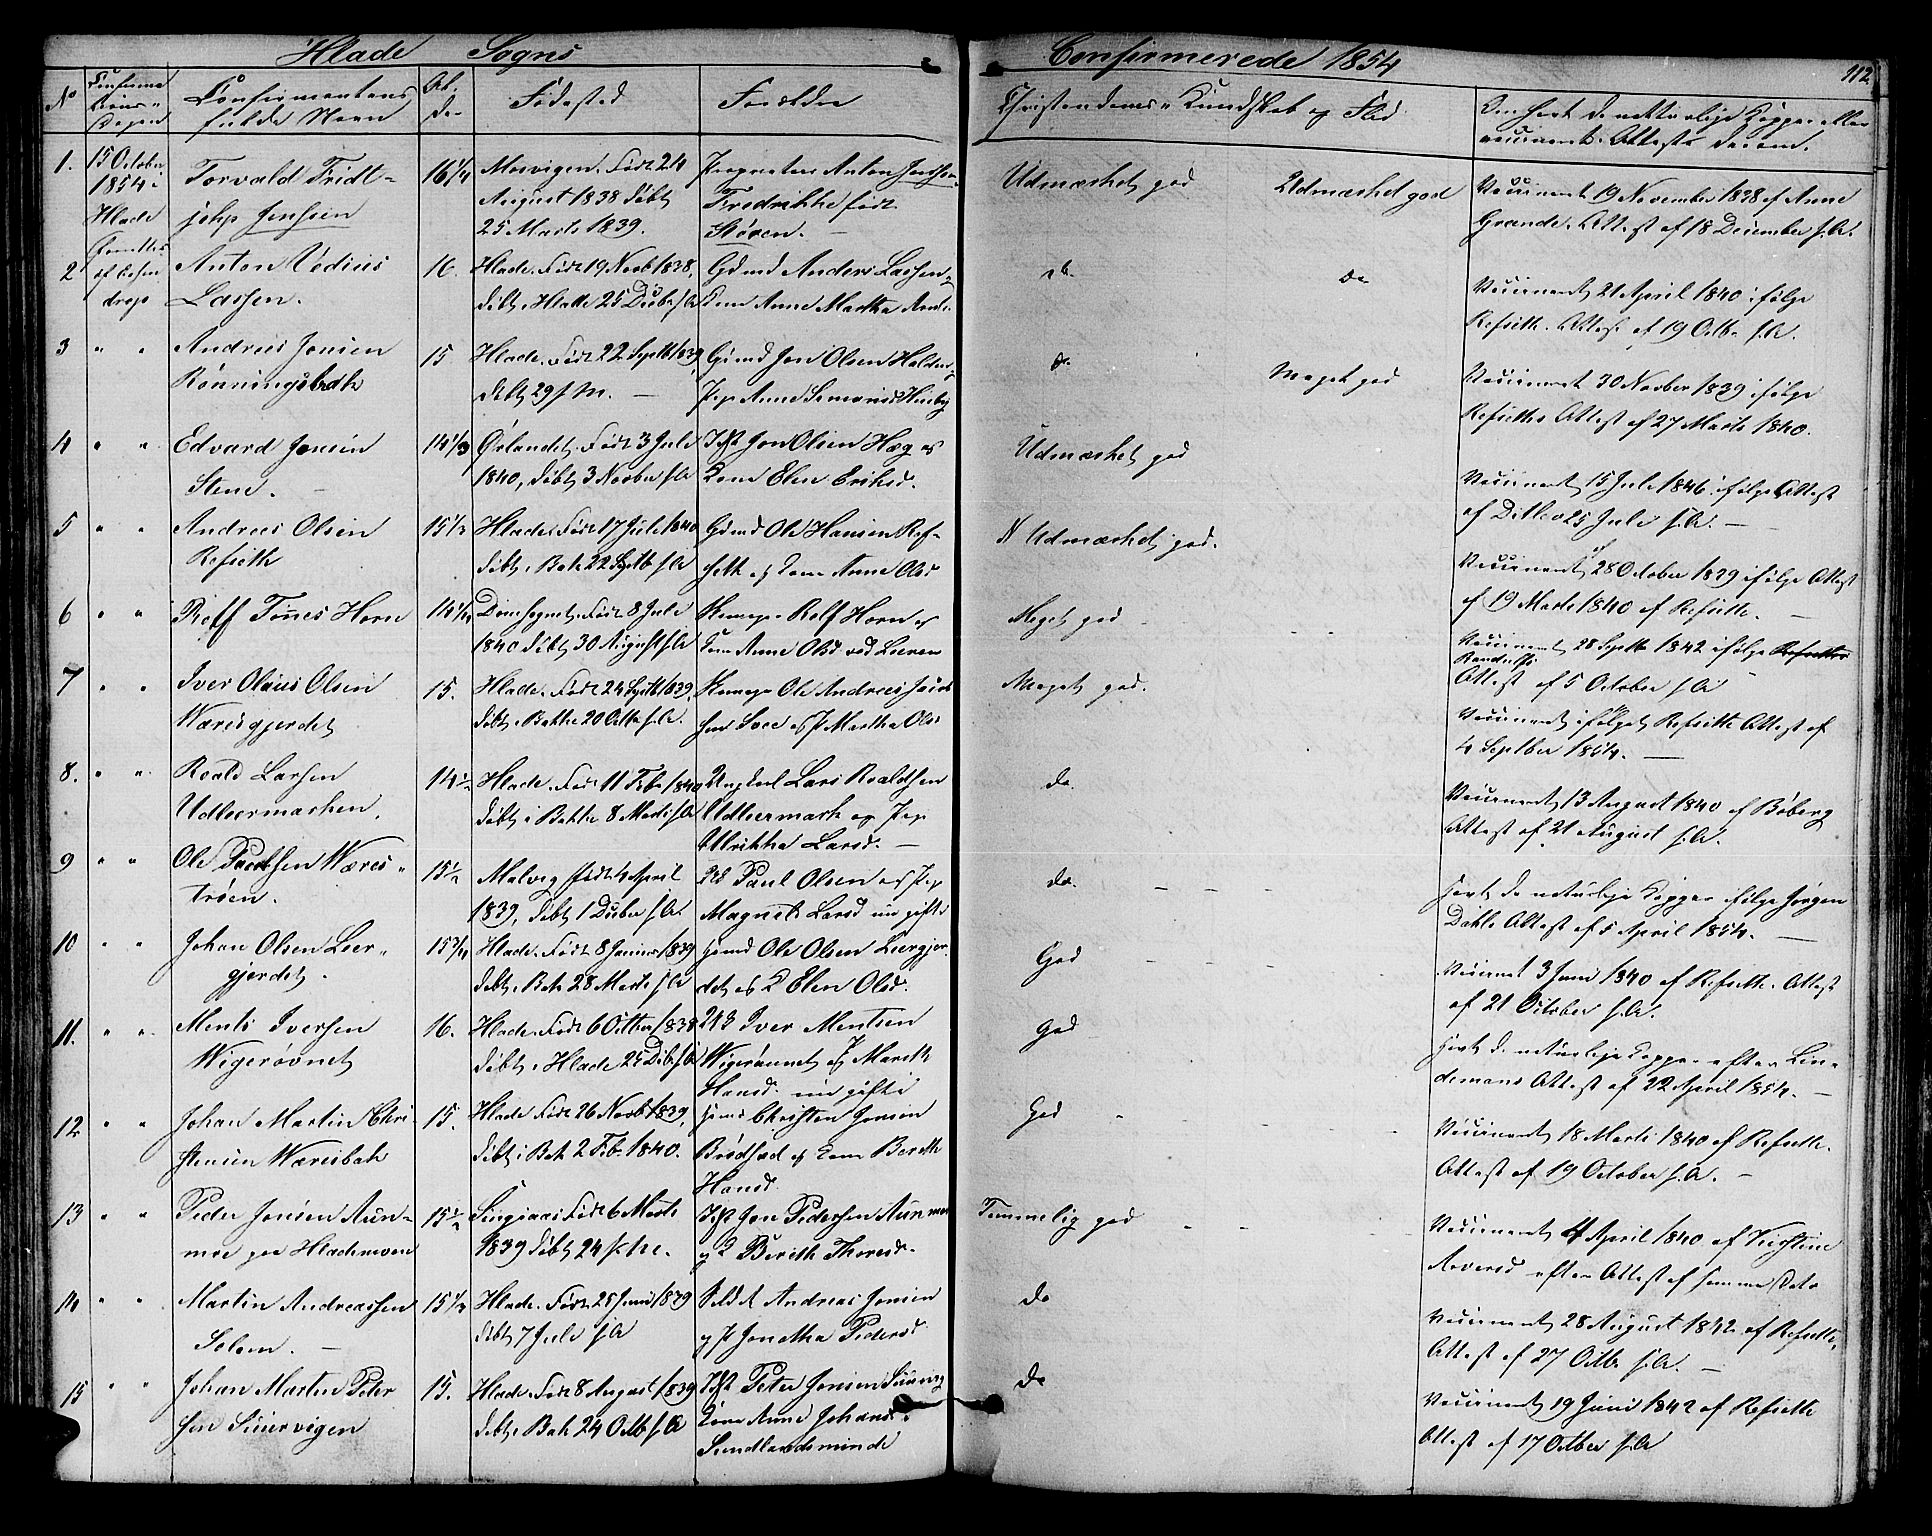 Hlade Sogns
Confirmerede 1854
112
No
Confirma
tions-
Dagen
Confirmantens
fulde Navn
Al-
der
Fødested
Forældre
Christendoms-Kundskab og Flid
Om havt de naturlige Kopper eller
vaccineret. Attestr derom.
1.
15 October
1854
Hlade
Torvald Fridt-
johp Jensein
16 1/4
Mosvigen. Født 24
August 1838 døbt
25 Marts 1839.
Proprietær Anton Jenssen
Fredrikke født
Støren.
Udmærket god
Udmærket god
Vaccineret 19 November 1838 af Anne
Grande. Attest af 18 December s.A.
2
Anton Vedius
Lassen.
16.
Hlade. Født 19 Novb 1838,
døbt i Hlade 25 Dcbr s.A
Gdmd Anders Lassen
Kone Anne Martha Ands.
do
do
Vaccineret 21 April 1840 ifølge
Refseth. Attest af 19 Octbr s.A.
3 " "
Andreas Jonsen
Rønningsbak
15
Hlade. Født 22 Septb 1839,
døbt 29 s.M.
Gdmd Jon Olsen
Pige Anne Simonsd
do
Meget god
Vaccineret 30 Novber 1839 ifølge
Refseths Attest af 27 Marts 1840.
4 " "
Edvard Jonsen
Stene.
14 1/3
Ørlandet. Født 3 Jule
1840, døbt 3 Novber s.A
Jon Olsen Hæg og
Kone Elen Eriksd.
Udmærket god
Vaccineret 15 Jule 1846 ifølge Attest
af Ditlev 25 Jule s.A.
5 " "
Andreas Olsen
Refseth
15 1/2
Hlade. Født 17 Jule 1840
døbt i Bak 22 Septb s.A
Gdmd Ole Hansen Ref-
seth og Kone Anne Olsd
Udmærket god.
Vaccineret 28 October 1839 ifølge Attest
af 19 Marts 1840 af Refseth.
6 " "
Roff Tønnes Horn
14 1/4
Domsognet. Født 8 Jule
1840 døbt 30 August s.A
Rolf Horn og
Kone Anne Olsd ved Leeren
Meget god
Vaccineret 28 Septb 1842 ifølge
Attest af 5 October s.A
7 " "
Iver Olaus Olsen
Væresgjerdet
15.
Hlade. Født 24 Septb 1839,
døbt i Bakke 20 Octbr s.A.
Ole Andreas Jacob
sen og P Martha Olsd
Meget god.
Vaccineret ifølge Refseth Attest af
4 Septber 1854.
8. " "
Roald Larsen
Udleermarken.
14 1/2
Hlade. Født 11 Feb 1840
døbt i Bakke 8 Marts s.A
Ungkarl Lars Roaldsen
Udleermark og Pige
Ulrikka Larsd.
do
Vaccineret 13 August 1840 af Boberg
Attest af 21 August s.A.
9 " "
Ole Paulsen Væres-
trøen.
15 1/2
Malvig født 4 April
1839, døbt 1 Dcber s.A.
Paul Olsen og Pige
Magnil Larsd nu gifte
do.
Havt de naturlige Kopper ifølge Jørgen
Dahls Attest af 5 April 1854.
10 " "
Johan Olsen Leer-
gjerdet.
15 3/4
Hlade. Født 8 Januar 1839
døbt i Bak 28 Marts s.A
Gdmd Ole Olsen Leergjer-
det og K Elen Olsd.
God
Vaccineret 3 Juni 1840 af Refseth. Attest
af 21 October s.A.
11. " "
Ments Iversen
Wigerøvnet
16.
Hlade. Født 6 Octber 1838
døbt i Hlade 25 Dcb. s.A
Iver Mentsen
Wigerøvnet og P Mareth
Hansd. nu gifte
God
Havt de naturlige Kopper efter Lin-
demans Attest af 22 April 1854.
12. " "
Johan Martin Chri-
stensen Væresbak
15.
Hlade. Født 26 Novb 1839,
døbt i Bak 2 Feb. 1840.
Gdmd Christen Jonsen
og Kone Bereth
Hansd
God
Vaccineret 18 Marts 1840 af Refseth.
Attest af 19 October s.A.
13 " "
Peder Jonsen Aun-
moe paa Hlademoen
15 1/2
Født 6 Marts
1839 døbt 24 s.M.
Jon Pedersen Aunmo
og K Bereth Thoresd.
Temmelig god
Vaccineret 4 April 1840 af
efter Attest af samme Dato
14 " "
Martin Andreassen
Solem.
15 1/3
Hlade. Født 25 Juni 1839
døbt 7 Jule s.A
Andreas Jonsen
og P Jonetha Pedersd
do
Vaccineret 28 August 1842 af Refseth,
Attest af 27 Octbr s.A.
15 " "
Johan Martin Peter
sen
15.
Hlade. Født 8 August 1839
døbt i Bak 24 Octb s.A
Peter Jonsen
Kone Anne Johansd.
Sundlandsminde
do
Vaccineret 19 Juni 1842 af Refseth
Attest af 17 Octber s.A